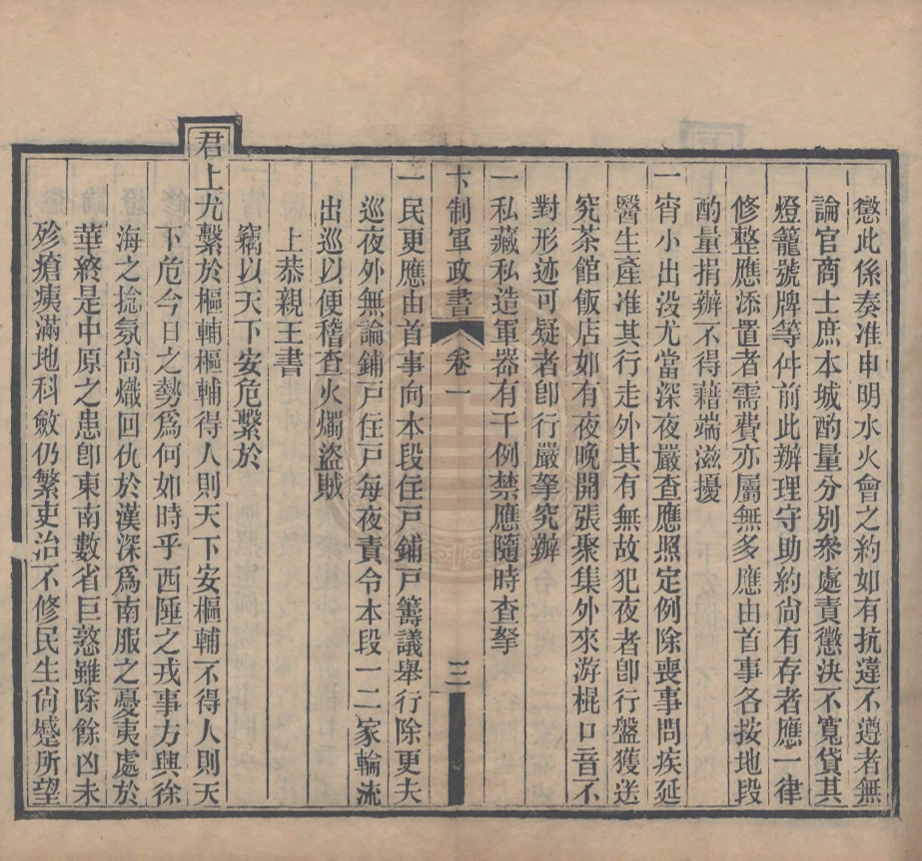 懲此係奏准申明水火會之約如有抗違不遵者無
論官商士庶本城酌量分別叅處責懲決不寬貸其
燈籠號牌等件前此辦理守助約尙有存者應一律
修整應添置者需費亦屬無多應由首事各按地段
酌量捐辦不得藉端滋擾
一宵小出没尤當深夜嚴查應照定例除喪事問疾延
醫生產准其行走外其有無故犯夜者卽行盤獲送
究茶館飯店如有夜晚開張聚集外來游棍口音不
對形迹可疑者卽行嚴拏究辦
一私藏私造軍器有干例禁應隨時查拏
卞制軍政書 卷一 三
一民更應由首事向本段住戸鋪戸籌議舉行除更夫
巡夜外無論鋪戸住戸每夜責令本段一二家輪流
出巡以便稽查火燭盜賊
上恭親王書
竊以天下安危繫於
君上尤繫於樞輔樞輔得人則天下安樞輔不得人則天
下危今日之勢爲何如時乎西陲之戎事方興徐
海之捻氛尙熾回仇於漢深爲南服之憂夷處於
華終是中原之患卽東南數省巨憝雖除餘凶未
殄瘡痍滿地科斂仍繁吏治不修民生尙蹙所望